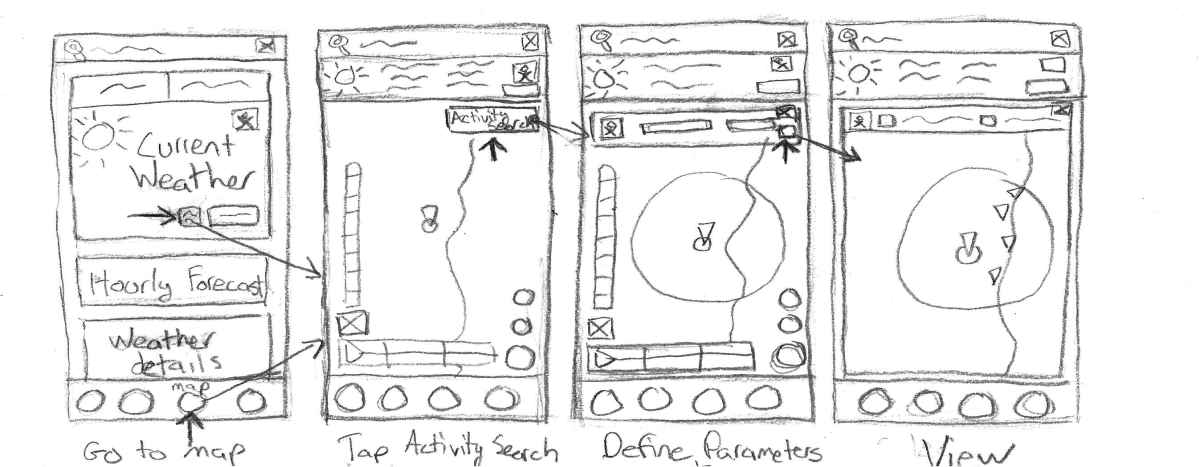 Current
Weather
Hourly Forecast
Weather
details
map
Go to map
Activity
Search
Tap Activity Search
Define Parameters
View